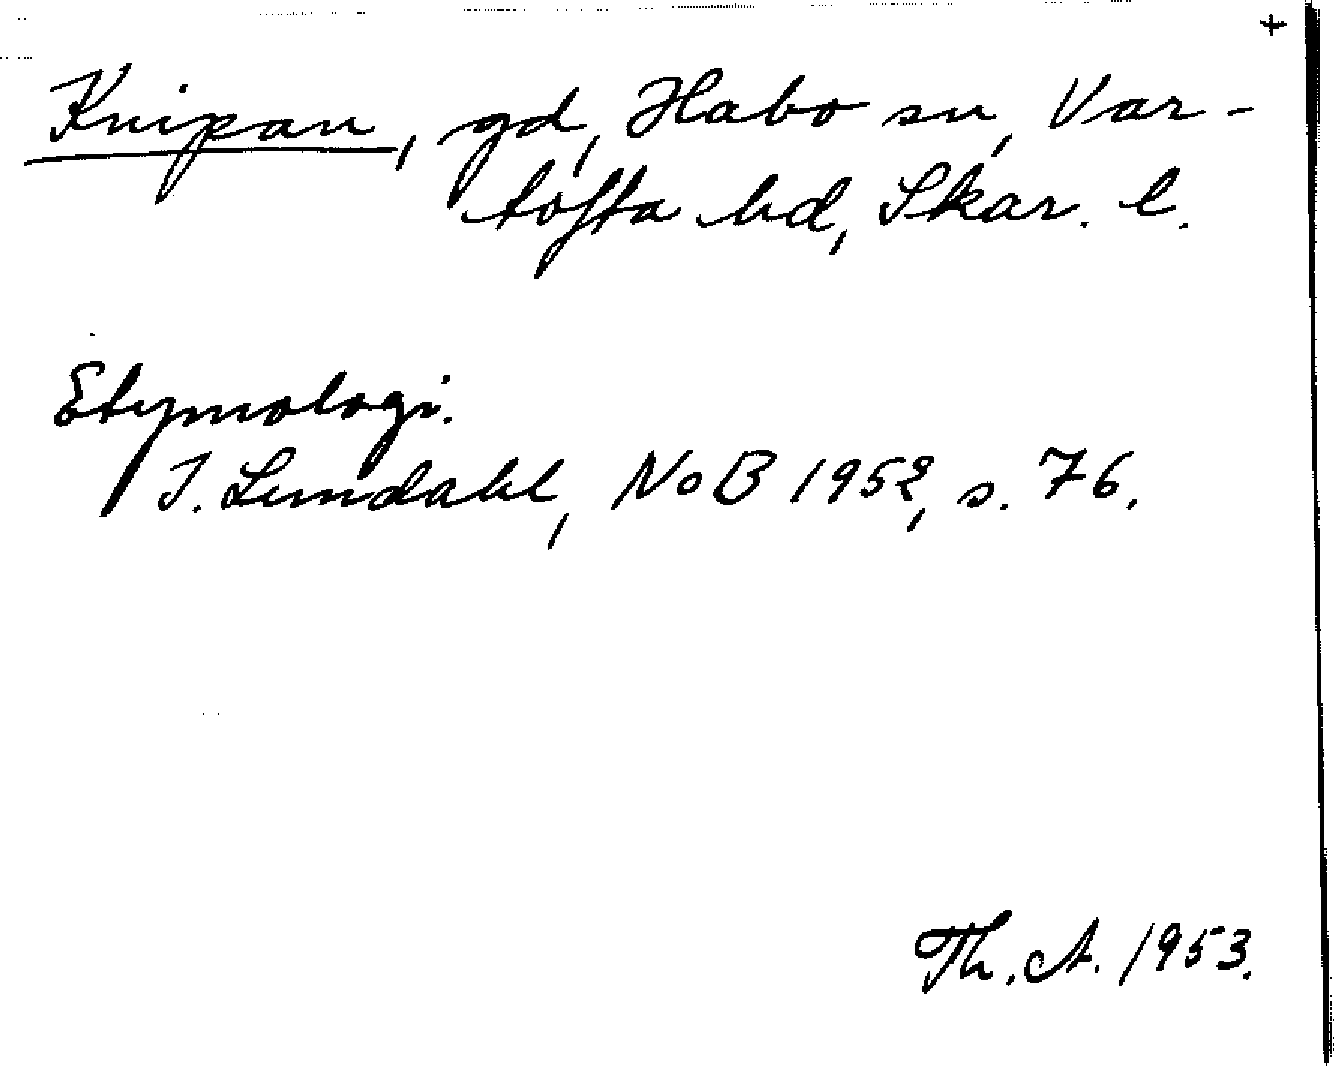 +
Knipan, gd, Habo sn, Var-
tofta hd, Skar. l.
Etymologi.
I. Lundahl, NoB 1952, s. 76.
Th. A. 1953.